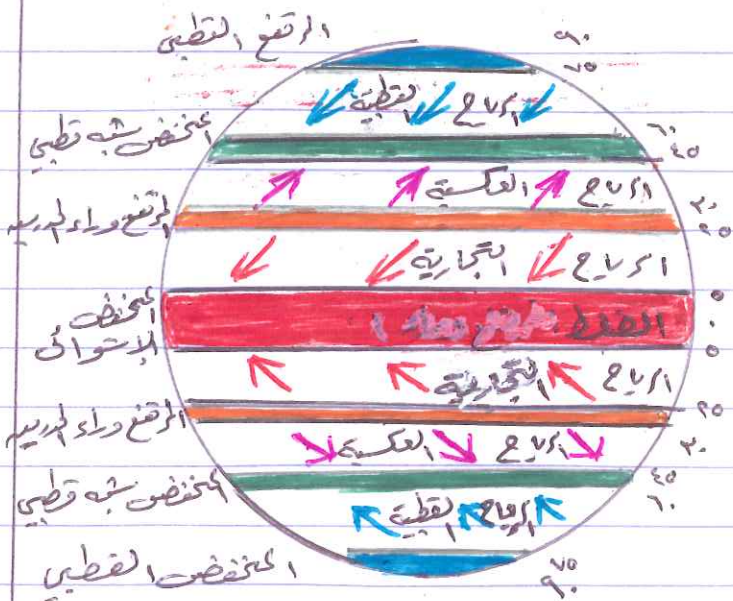 المرتفع القطبي
٩٠
٧٥
الرياح القطبية
المنخفض شبه قطبي
٦٠
٤٥
الرياح العكسية
المرتفع وراء المدريه
٣٠
٢٥
الرياح التجارية
المنخفض الإستوائي
٥
٠
٥
الضغط
الرياح التجارية
المرتفع وراء المدريه
٢٥
٣٠
الرياح العكسية
المنخفض شبه قطبي
٤٥
٦٠
الرياح القطبية
المنخفض القطبي
٧٥
٩٠